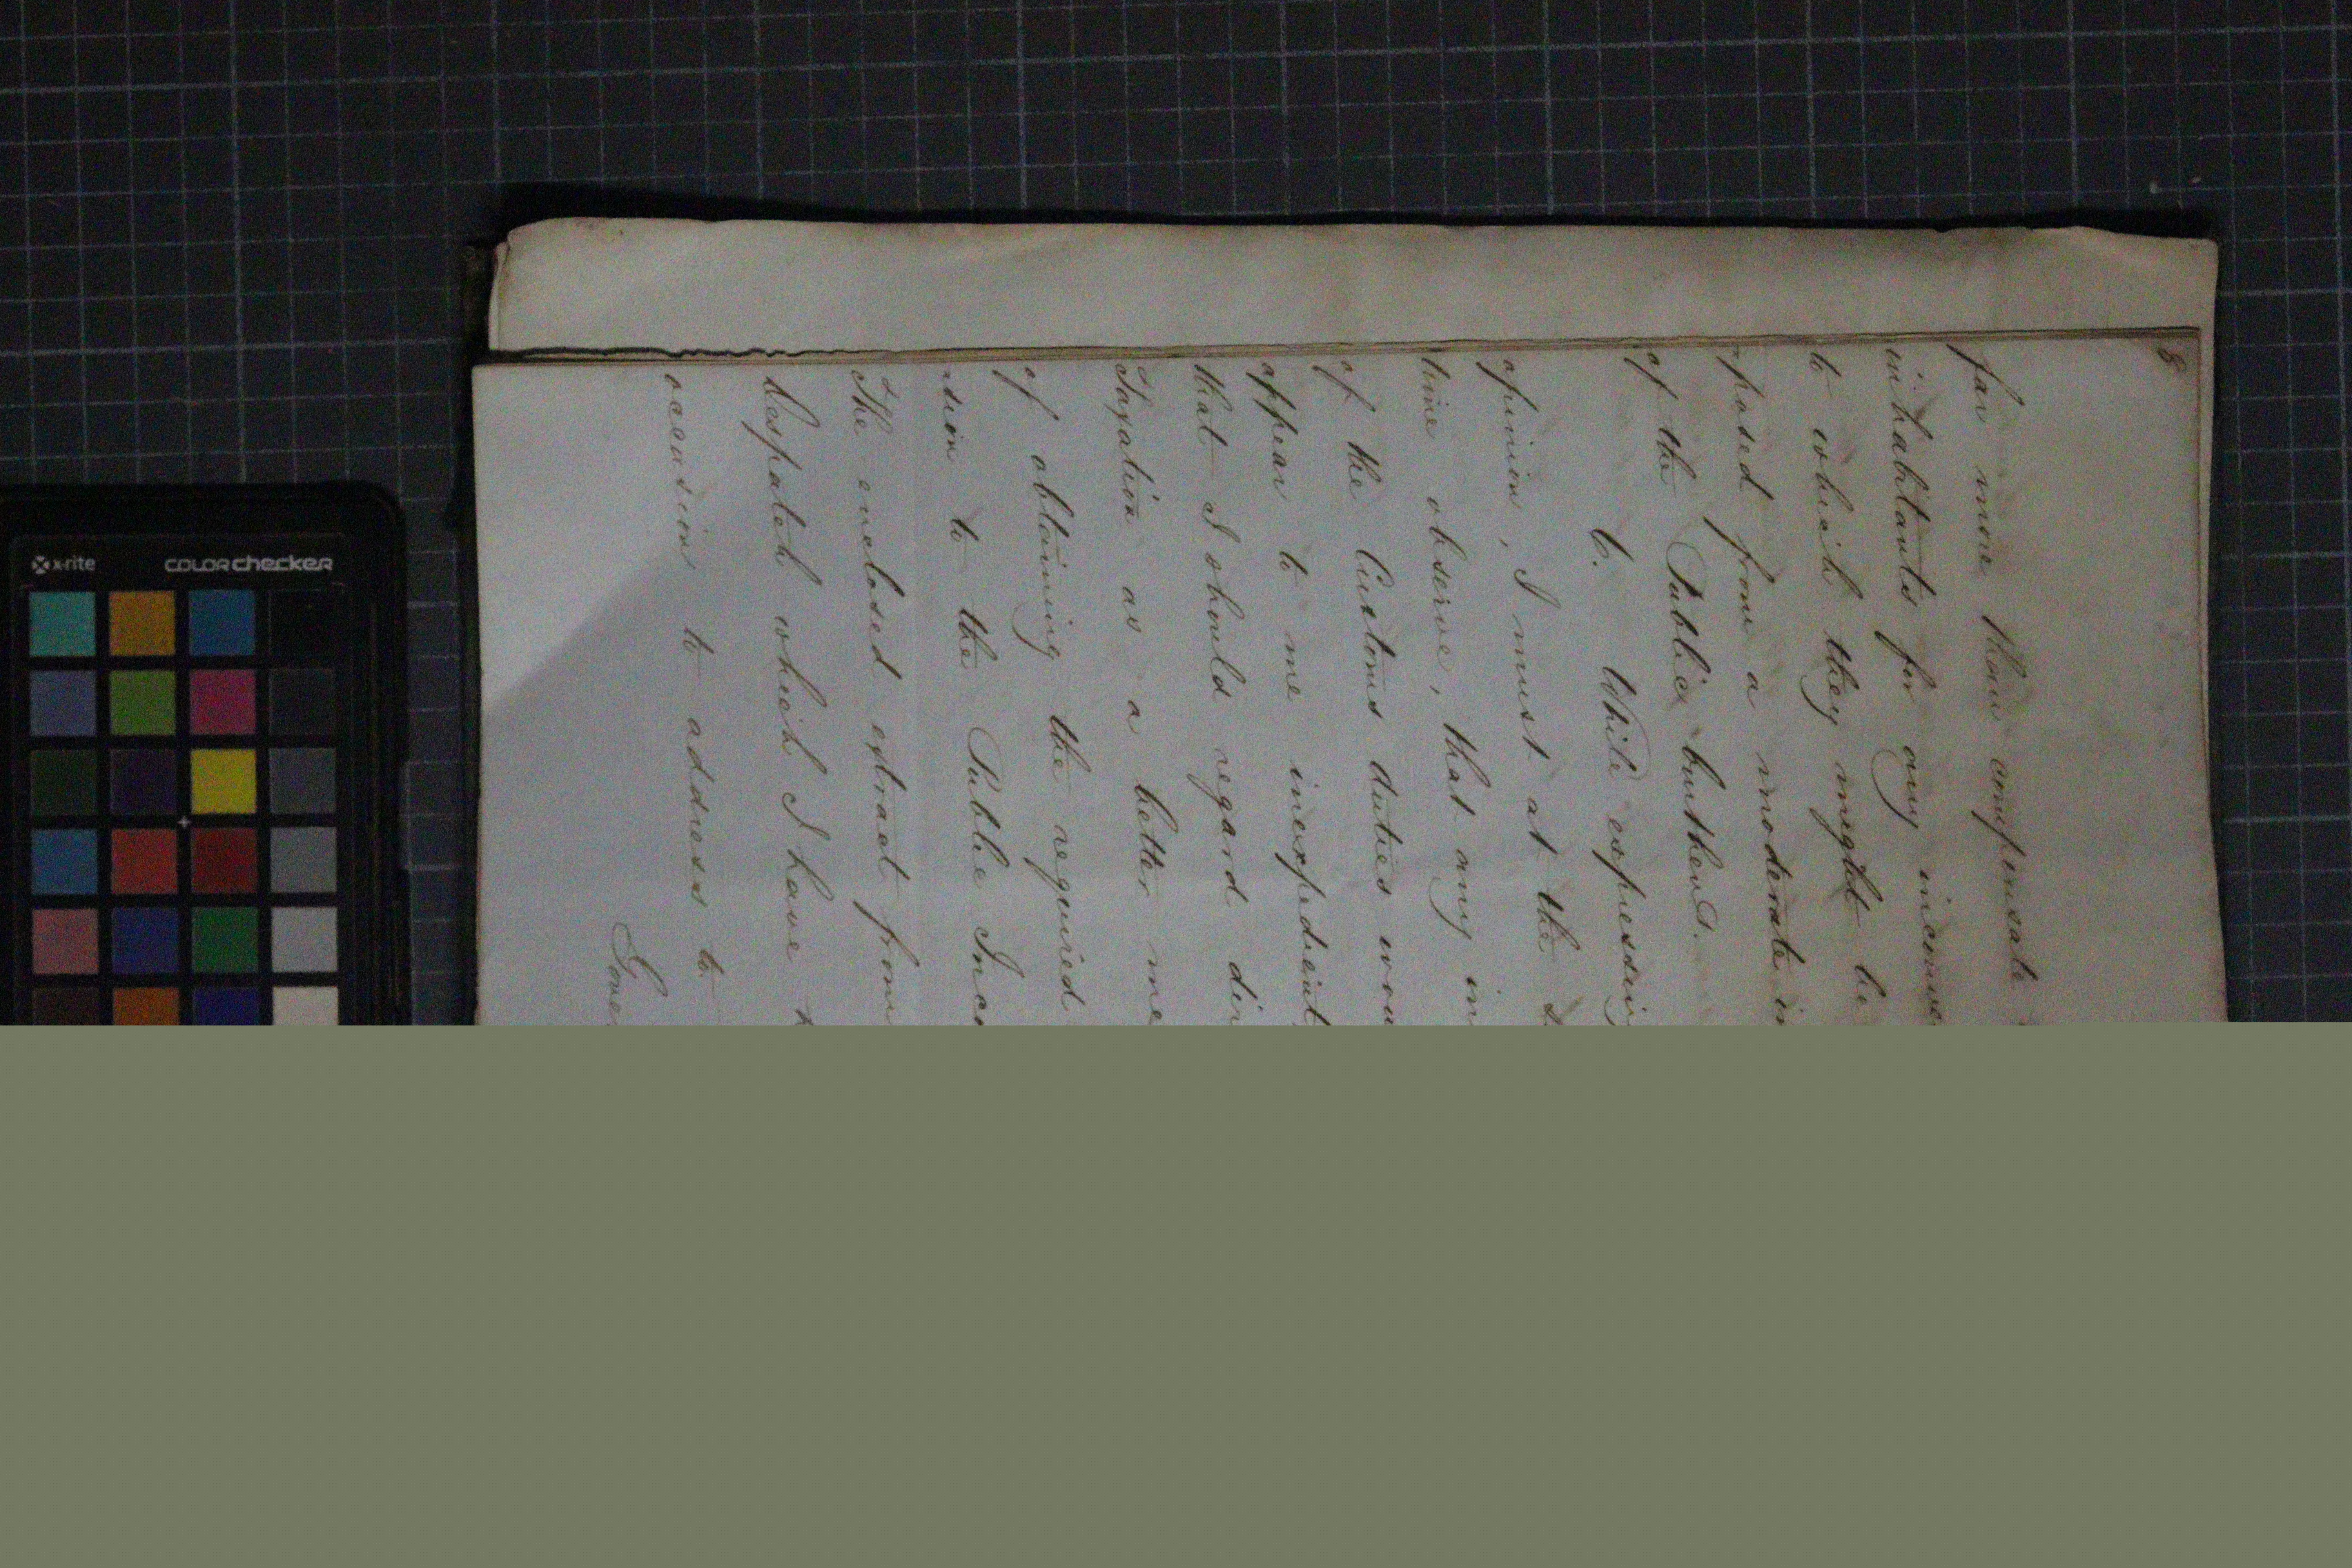 8
far more than compensate
inhabitants for any
to which they might be
posed from a moderate
of the Public burthens.
6. While expressing
opinion, I must at the
time observe, that any
of the Customs duties
appear to me inexpedient
that I should regard
Taxation as a better
of obtaining the required
to the Public
The enclosed extract from
despatch which I have
occasion to address to
x-rite colorchecker